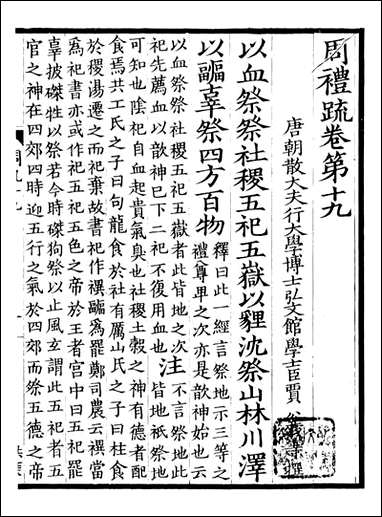 周禮疏卷第十九
唐朝散大夫行大學博士弘文館學士臣賈公彥等撰
以血祭祭社稷五祀五嶽以貍沈祭山林川澤
以疈辜祭四方百物
釋曰此一經言祭地示三等之
禮尊卑之次亦是歆神始也云
以血祭祭社稷五祀五嶽者此皆地之次
注
不言祭地此
皆地祇祭地
可知也陰祀自血起貴氣臭也社稷土穀之神有德者配
食焉共工氏之子曰句龍食於社有厲山氏之子曰柱食
於稷湯遷之而祀棄故書祀作禩疈爲罷鄭司農云禩當
爲祀書亦或作祀五祀五色之帝於王者宮中曰五祀罷
辜披磔牲以祭若今時磔狗祭以止風玄謂此五祀者五
官之神在四郊四時迎五行之氣於四郊而祭五德之帝
周九十九